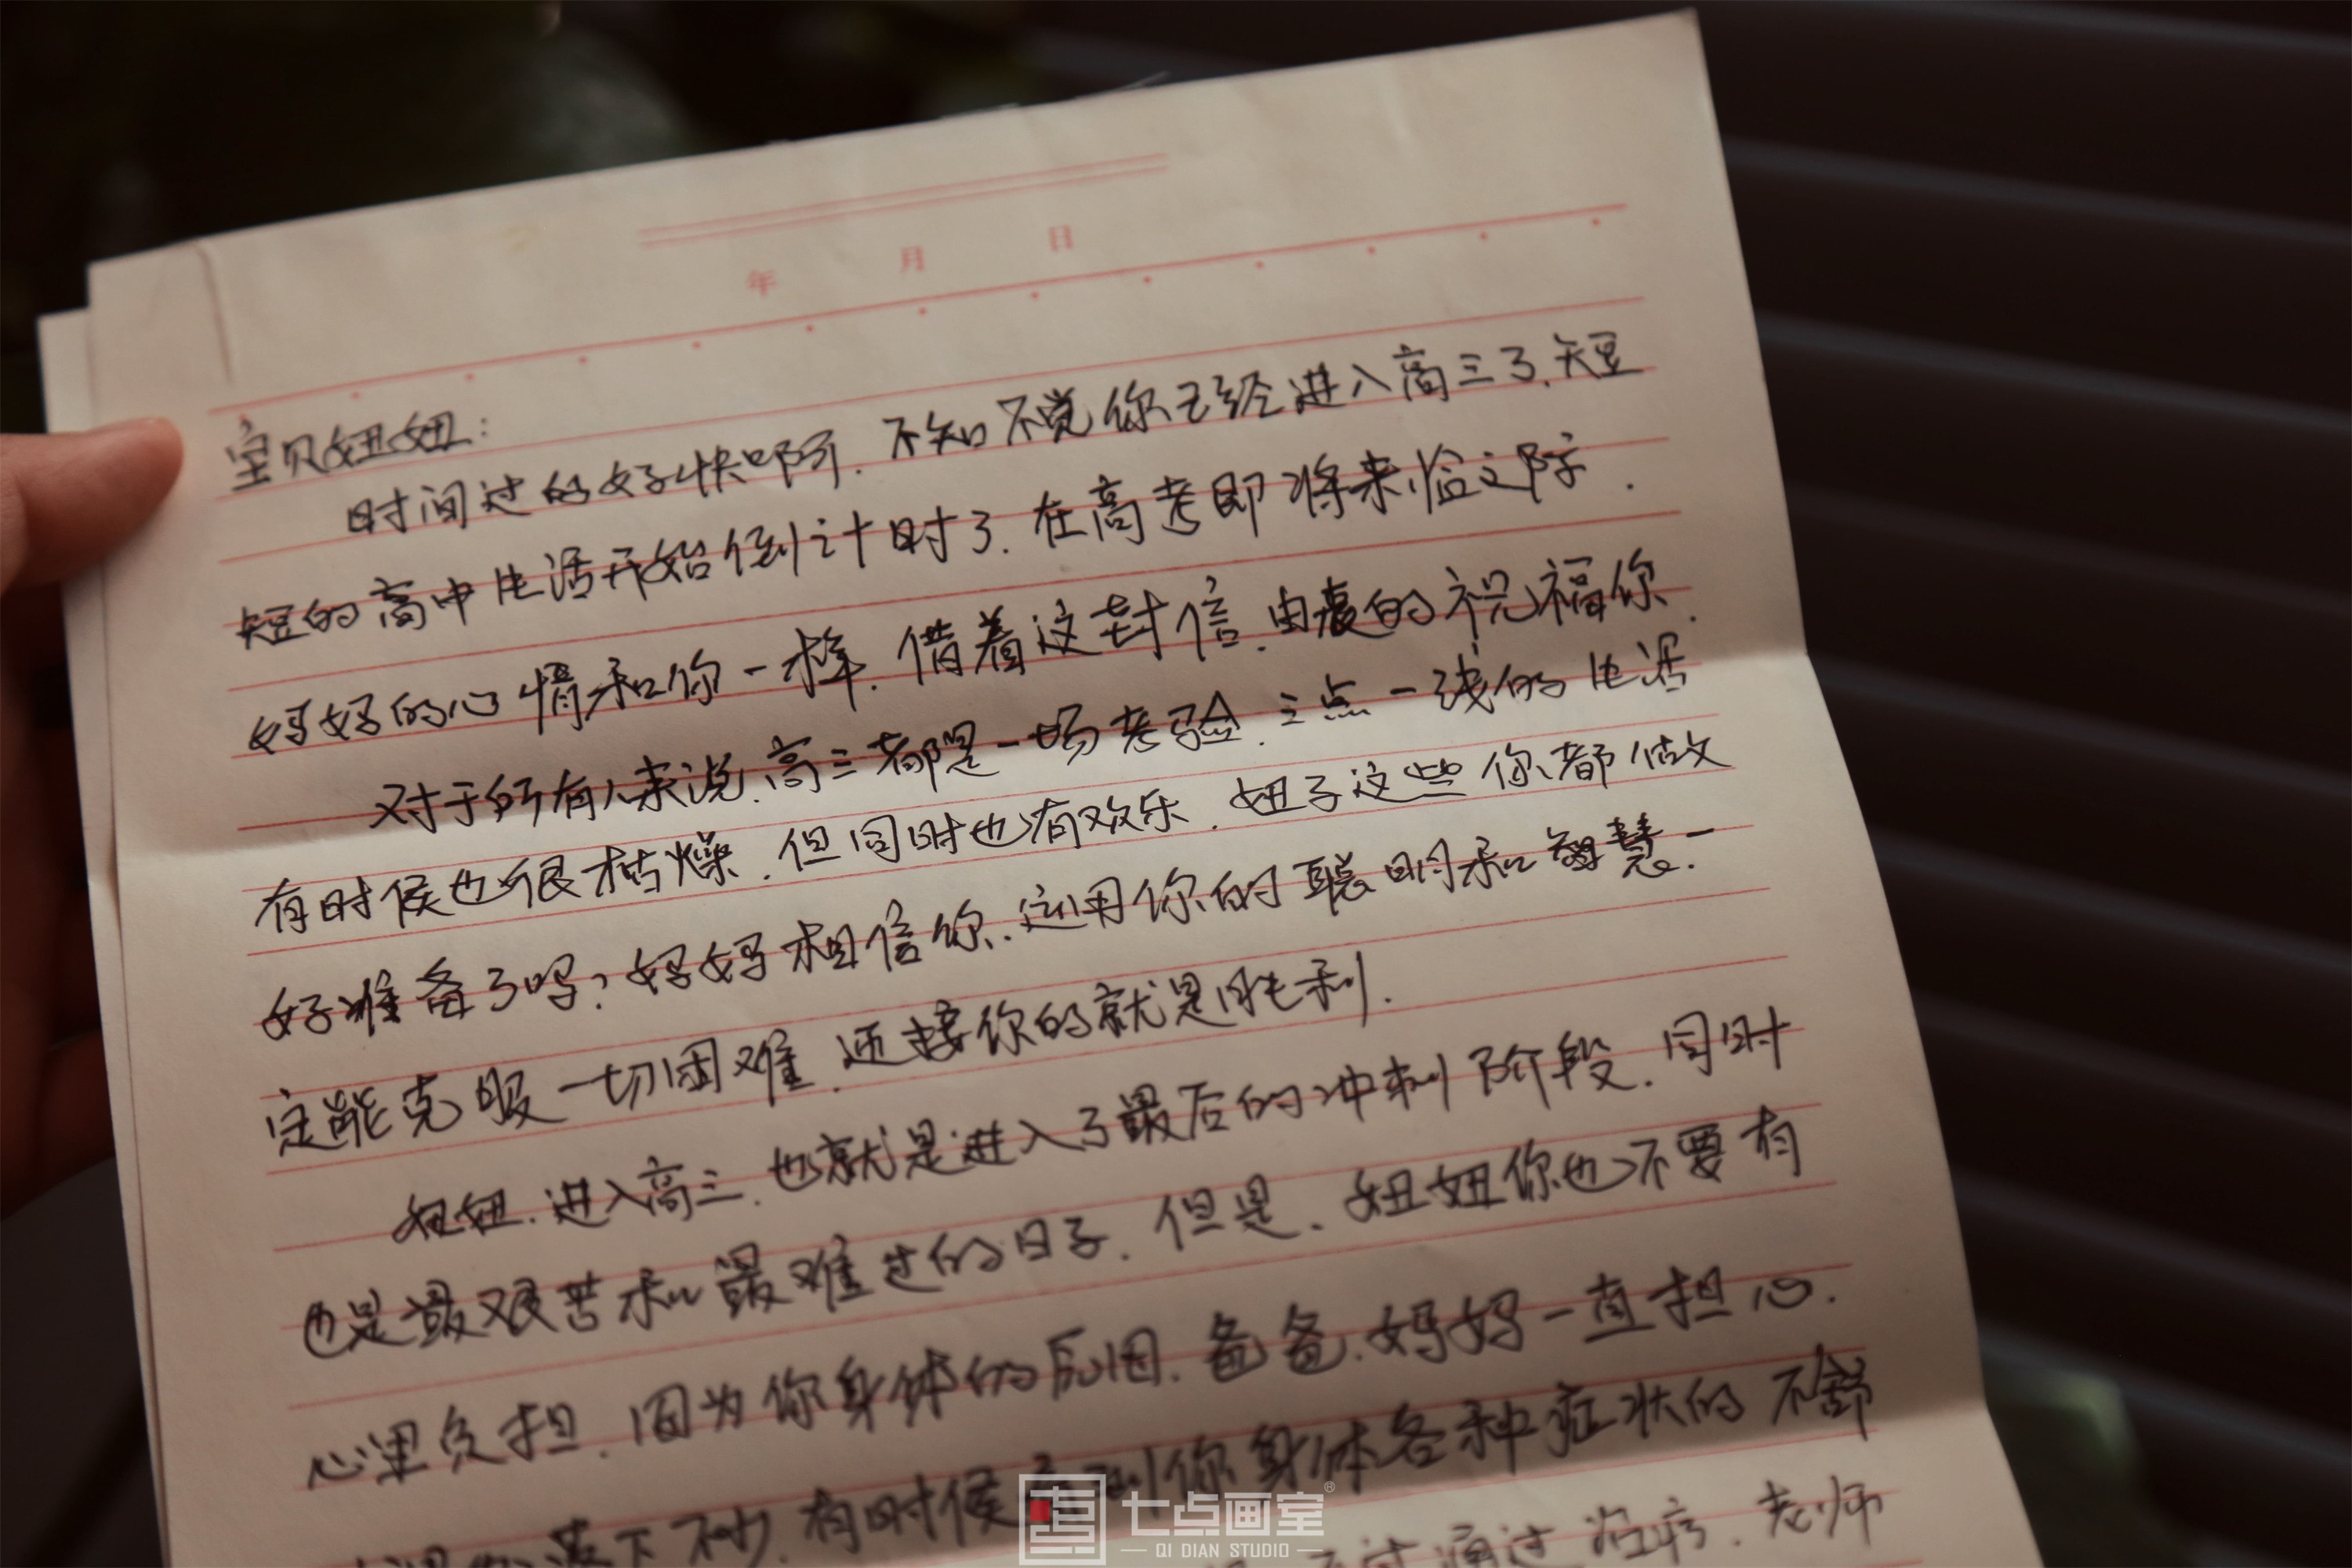 年 月 日
宝贝妞妞:
时间过的好快啊.不知不觉你已经进入高三了.短
短的高中生活开始倒计时了.在高考即将来临之际.
妈妈的心情和你一样.借着这封信.由衷的祝福你.
对于所有人来说.高三都是一场考验.三点一线的生活
有时候也很枯燥.但同时也有欢乐.妞子这些你都做
好准备了吗?妈妈相信你.运用你的聪明和智慧.一
定能克服一切困难.迎接你的就是胜利.
妞妞.进入高三.也就是进入了最后的冲刺阶段.同时
也是最艰苦和最难过的日子.但是、妞妞你也不要有
心里负担.因为你身体的原因.爸爸.妈妈一直担心.
落下 有时候 到你身体各种症状的不舒
通过治疗.老师
七点画室®
QI DIAN STUDIO